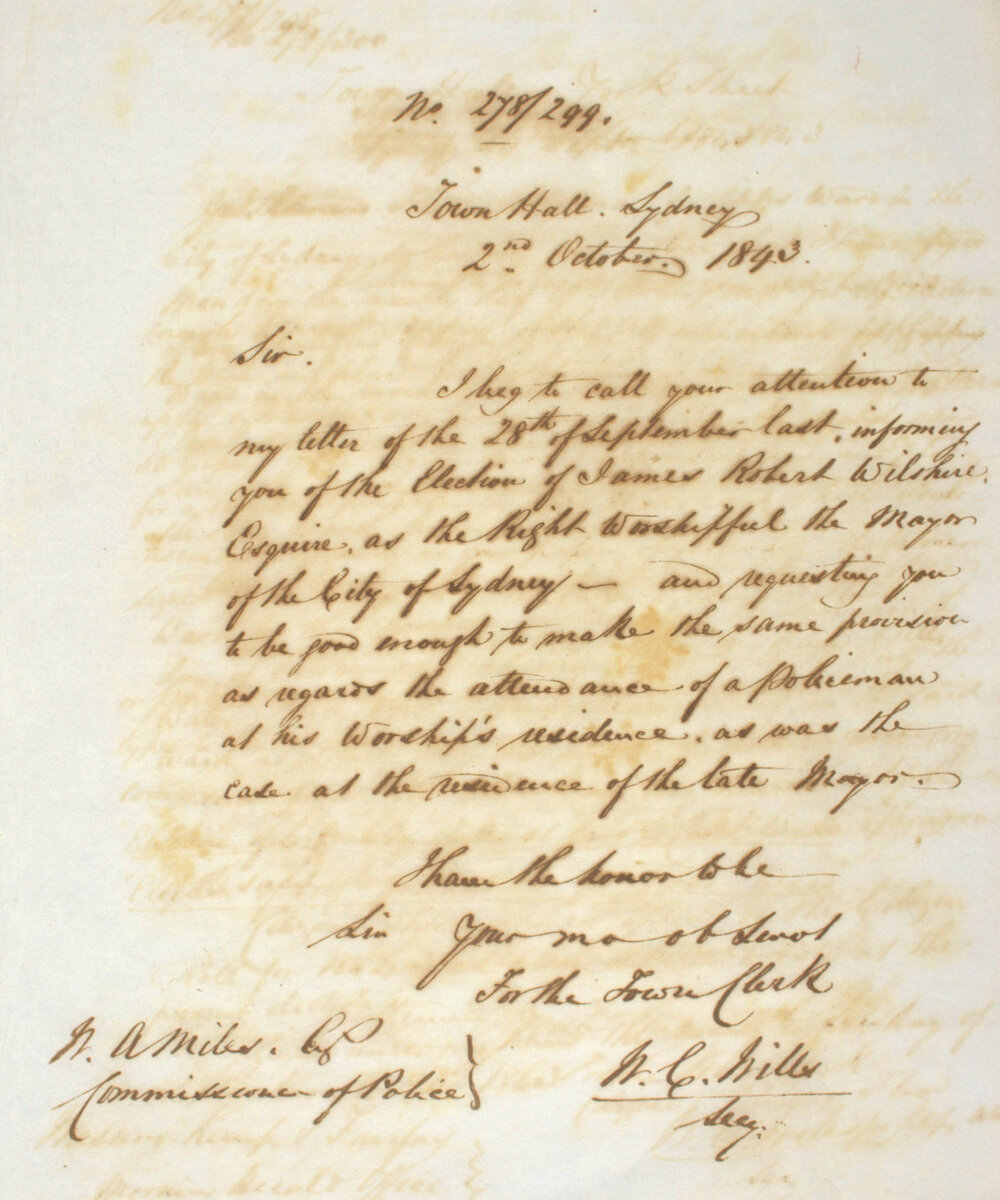 No. 278/299.
Town Hall. Sydney
2nd. October. 1843.
Sir.
I beg to call your attention to
my letter of the 28th of September last, informing
you of the Election of James Robert Wilshire.
Esquire. as the Right Worshipful the Mayor
of the City of Sydney — and requesting you
to be good enough to make the same provision
as regards the attendance of a Policeman
at his Worship's residence. as was the
case at the residence of the late Mayor.
I have the honor to be
Sir Your mo ob Servt
For the Town Clerk
W. A Miles. Esq
Commissioner of Police
W. C. Wills
Secy.